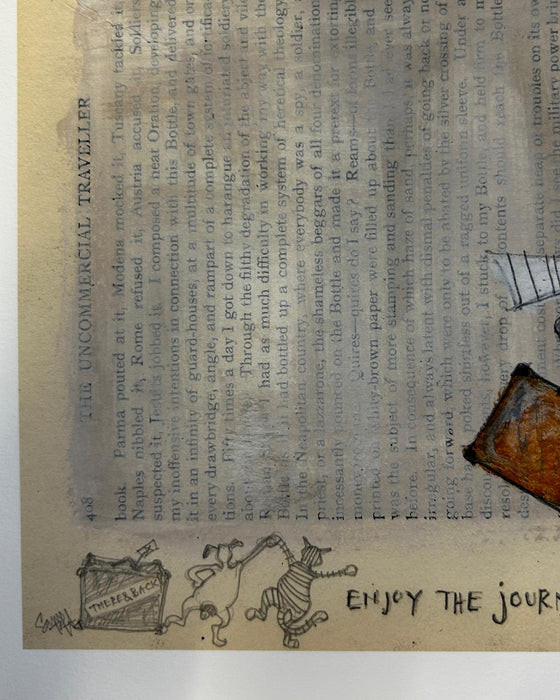 408
THE UNCOMMERCIAL TRAVELLER
book. Parma pouted at it, Modena mocked it, Tuscany tackled it,
Naples nibbled it, Rome refused it, Austria accused it, Soldiers
suspected it, Jesuits jobbed it. I composed a neat Oration, developing
my inoffensive intentions in connection with this Bottle, and delivered
it in an infinity of guard-houses, at a multitude of town gates, and on
every drawbridge, angle, and rampart of a complete system of fortifica-
tions. Fifty times a day I got down to harangue an infuriated soldiery
about Through the filth degradation of the abject and vile
R had as much difficulty in working my way with the
had bottled up a complete system of heretical theology.
In the Neapolitan country, where everybody was a spy, a soldier, a
priest, or a lazzarone, the shameless beggars of all four denominations
incessantly pounced on the Bottle and made it a pretext for extorting
money Quires—quires do I say? Reams—of forms illegibly
printed on whity-brown paper were filled up about the Bottle, and
was the subject of more stamping and sanding than I had ever see
before. In consequence of which haze of sand, perhaps, it was always
irregular, and always latent with dismal penalties of going back or no
going forward, which were only to be abated by the silver crossing of
base poked shirtless out of a ragged uniform sleeve. Under a
discou However, I stuck to my Bottle, and held firm to m
reso every drop of contents should reach the Bottle
des
separate heap of troubles on its ow
military power
THERE & BACK
ENJOY THE JOURN